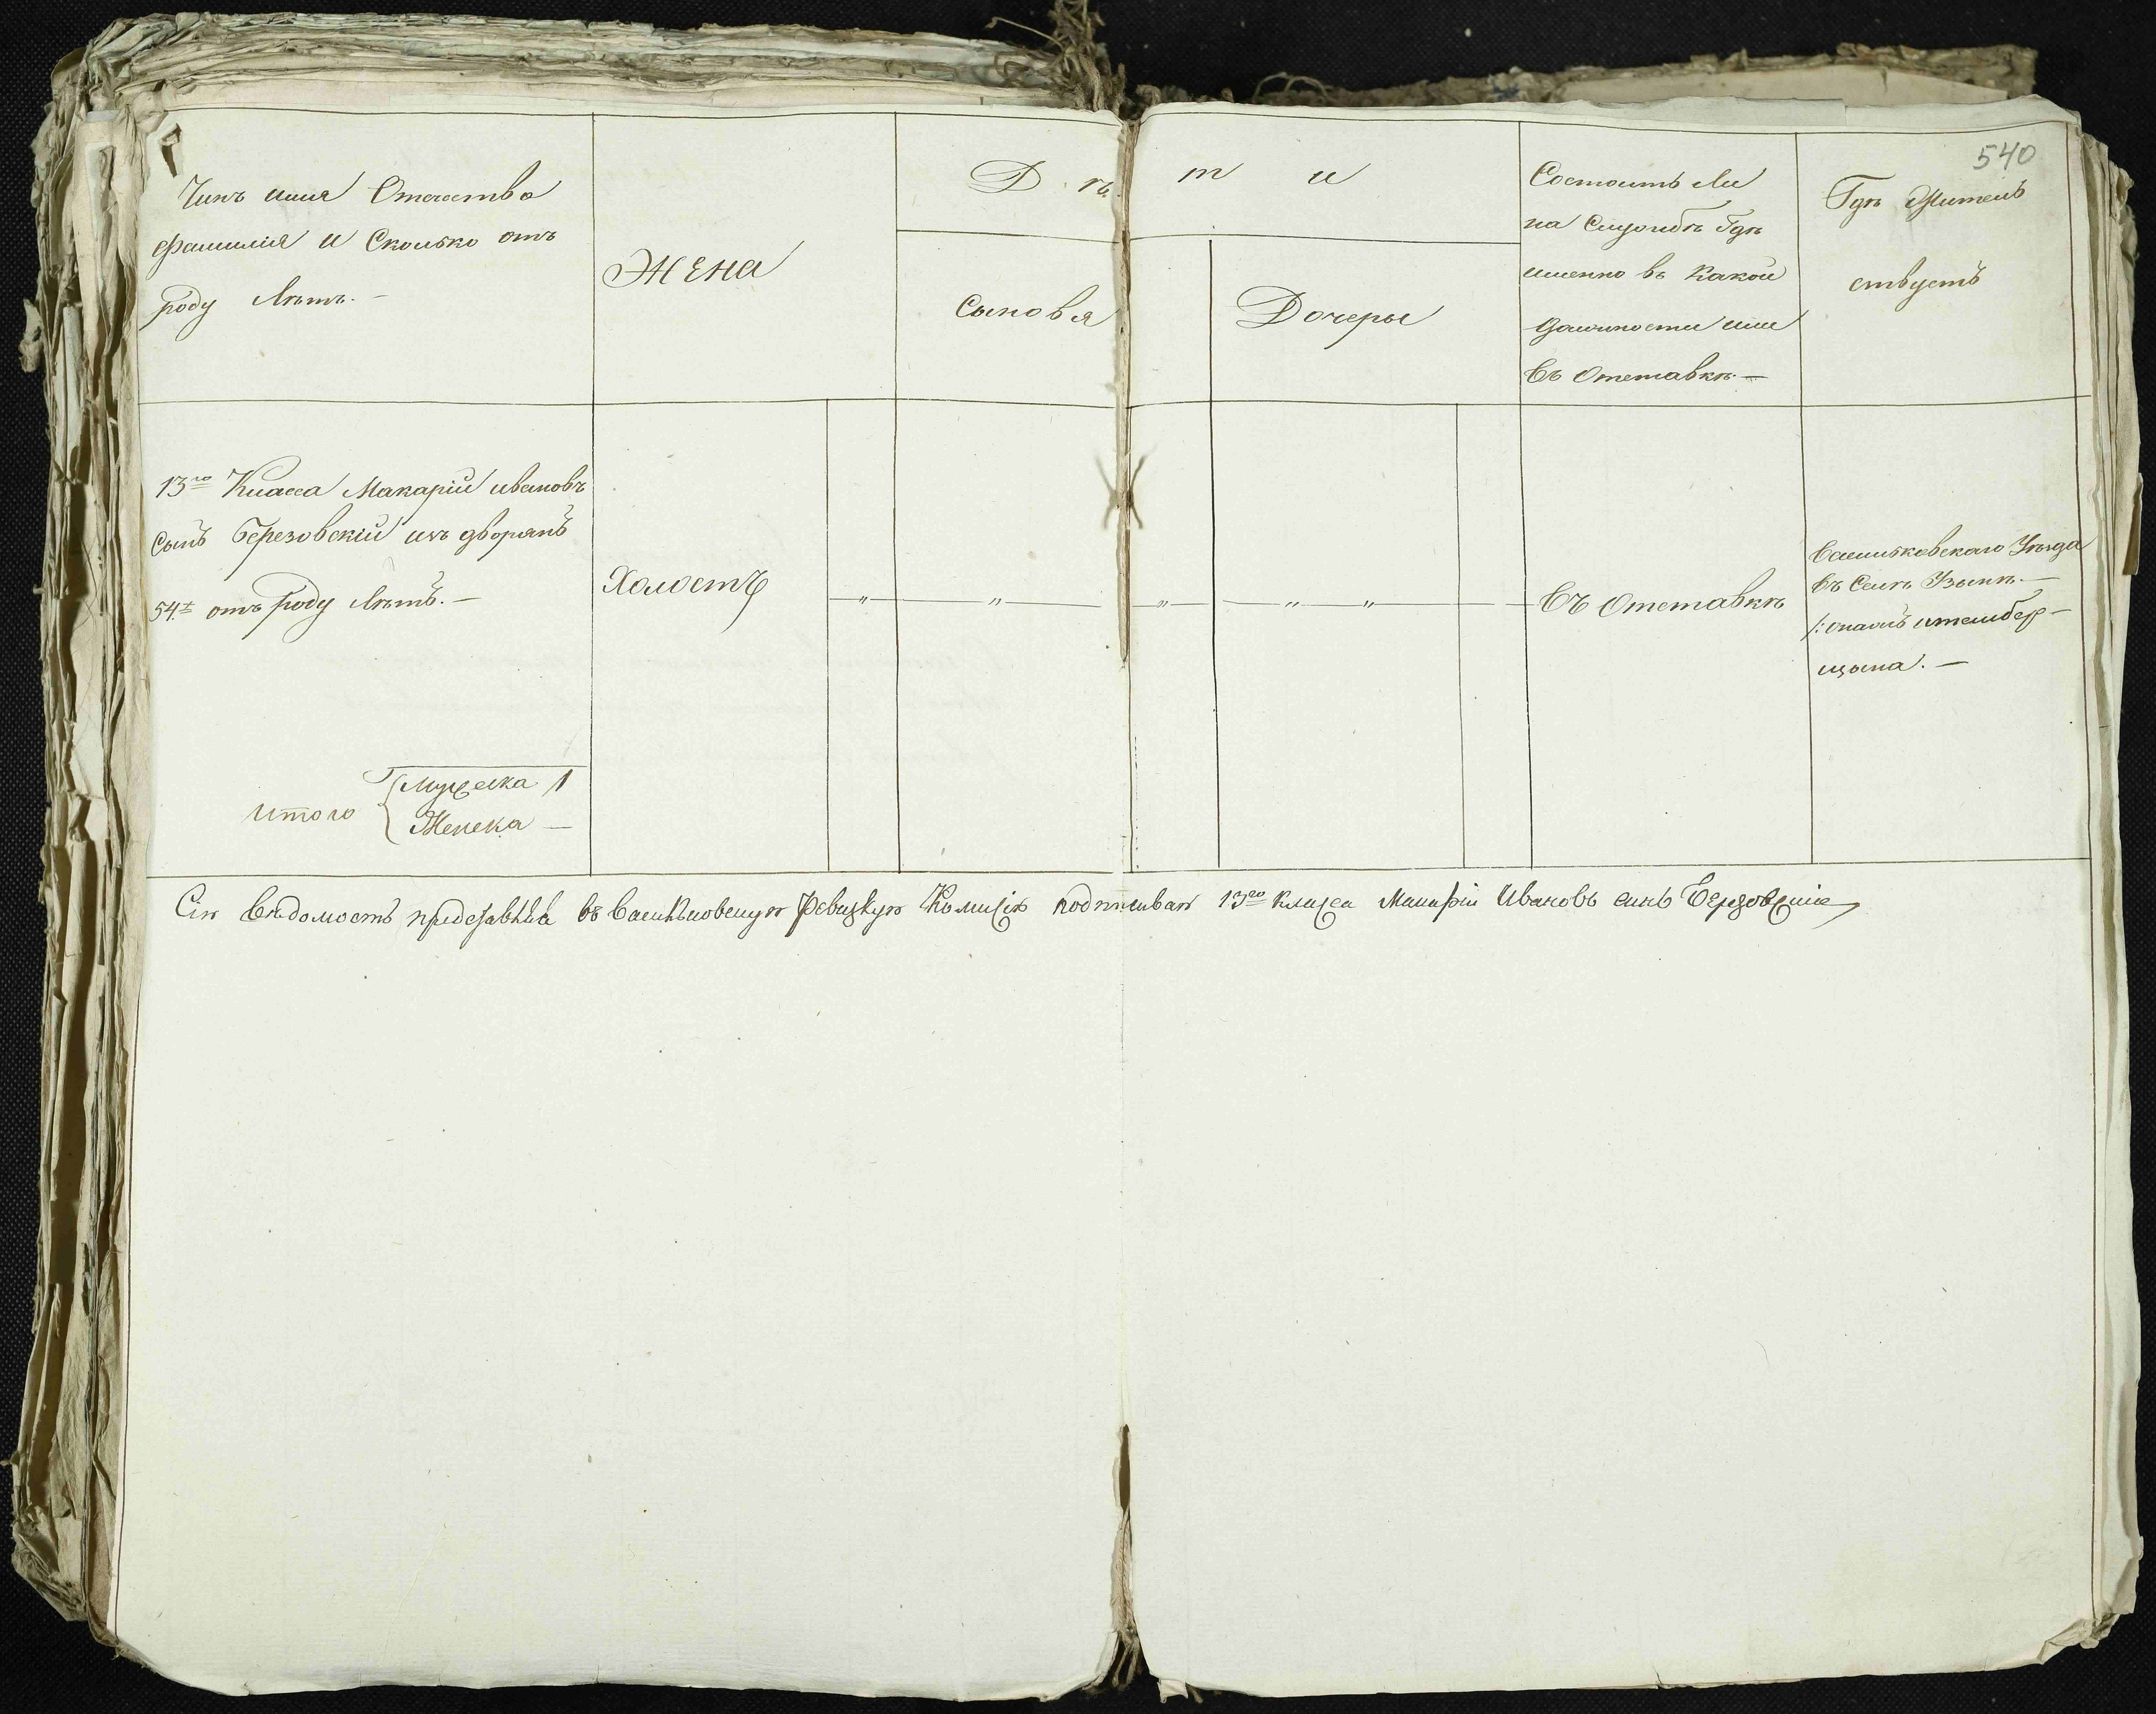 540
Чинъ имя Отечество
фамилія и Сколько отъ
роду лѣтъ. —
Жена
Дѣти
Сыновя
Дочеры
Состоитъ ли
на Службѣ Гдѣ
именно въ Какой
должности или
въ Отставкѣ. —
Гдѣ Жителъ
ствуетъ
13го Класса Макарій ивановъ
сынъ Березовскій изъ дворянъ
54х отъ роду лѣтъ. —
Холостъ
— „ — — „ — — „ — — „ — „ —
въ Отставкѣ
Васильковскаго Уѣзда
въ Селѣ Узынѣ. —
итого Мужеска 1
Женска —
Сію вѣдомость въ Васильковскую Ревизкую Комисію 13го класса Макарій Ивановъ синъ Березовскіи